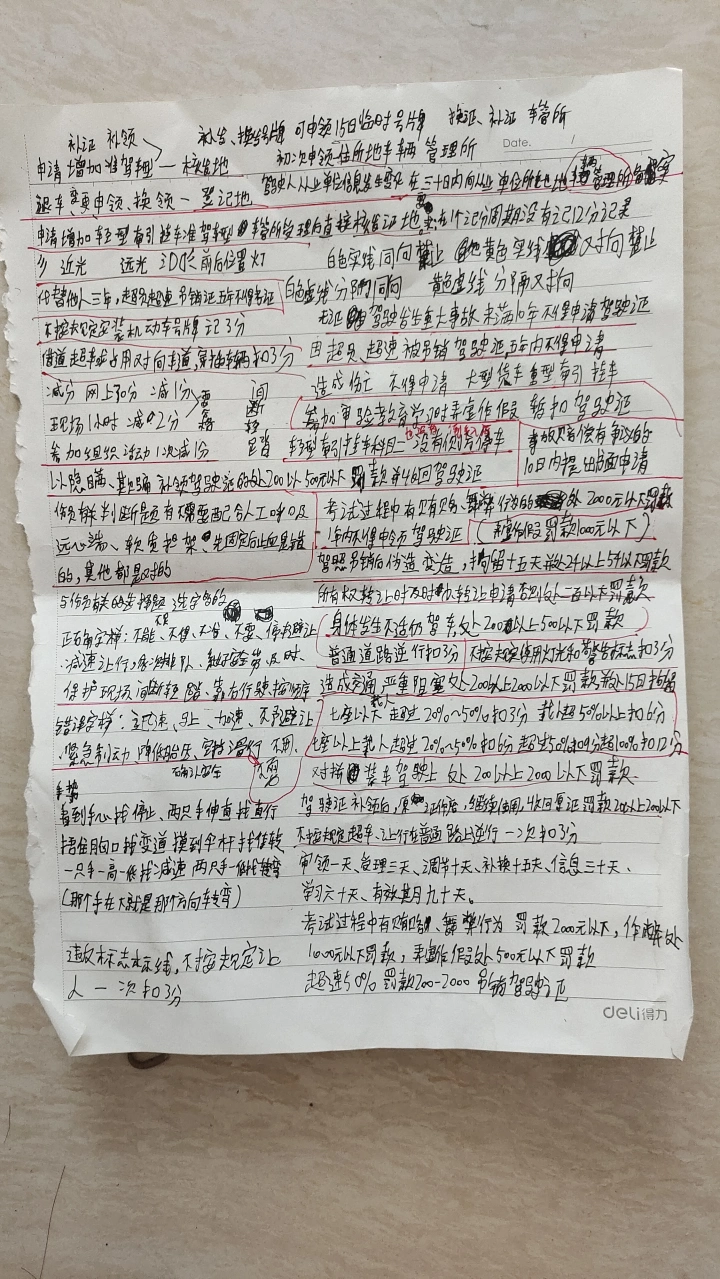 补证 补领
补发、换号牌 可申领15日临时号牌 换证、补证 车管所
申请增加准驾车型 — 核发地 初次申领住所地车辆管理所
Date. /
驾驶人从业单位信息发生变化 在三十日内向从业单位所在地车辆管理所备案
变更申领、换领 — 登记地
申请增加车型牵引挂车准驾车型 车管所受理后直接核发证 在1个记分周期没有记12分记录
近光 远光 前后位置灯
白色实线同向禁止 黄色实线 双对向禁止
代替他人三年,超员超速吊销证五年不得考证
白色虚线分隔同向 黄色虚线分隔双对向
不按规定安装机动车号牌记3分
驾驶发生重大事故 未满10年不得申请驾驶证
借道超车或占用对向车道,穿插车辆扣3分
因超员、超速被吊销驾驶证,五年内不得申请
减分 网上30分 减1分 需 间
造成伤亡 不得申请 大型货车重型牵引挂车
现场1小时 减2分 断
参加审验教育学习时弄虚作假 暂扣驾驶证
参加组织活动1次减1分 踏
轻型牵引挂车科目二没有侧方停车
事故损害赔偿有争议的
10日内提出书面申请
以隐瞒、欺骗补领驾驶证的处200以上500元以下罚款并收回驾驶证
伤员救护判断题还有不需要配合人工呼吸及
考试过程中有贿赂、舞弊行为的处2000元以下罚款
远心端、软质担架、先固定后止血是错
1年内不得申领驾驶证 (弄虚作假罚款1000元以下)
的,其他都是对的
驾照吊销后伪造变造,拘留十五天并处2千以上5千以下罚款
与伤员有关的选择题 选字多的
所有权转让时及时办转让申请否则处二百以下罚款
正确字样:不能、不得、不准、不要、停车避让
身体发生不适仍驾车处200以上500以下罚款
减速让行,依次排队、系好安全带及时、
普通道路逆行扣3分 不按规定使用灯光和警告标志扣3分
保护现场间断轻踏、靠右行驶按顺序
造成交通严重阻塞处200以上2000以下罚款并处15日拘留
错误字样:立即、马上、加速、不予避让
七座以下超过20%~50%扣3分 载人超50%以上扣6分
紧急制动 降低胎压、空挡滑行 不用、
七座以上载人超过20%~50%扣6分 超过50%扣9分超100%扣12分
确认安全
对拼装车驾驶上处200以上2000以下罚款
手势
看到手心掉停止、两只手伸直找直行
驾驶证补领后,原证作废,继续使用,收回原证罚款20以上200以下
捂住胸口找变道 摸到伞杆找左转
不按规定超车、让行在普通路上逆行一次扣3分
一只手一高一低找减速 两只手一低找转弯
审领一天、受理三天、调节十天、补换十五天、信息三十天、
(那个手在下就是那个方向车转弯)
学习六十天、有效期月九十天。
考试过程中有贿赂、舞弊行为 罚款2000元以下,作弊处
违反标志标线,不按规定让
1000元以下罚款,弄虚作假处500元以下罚款
人 一次扣3分
超速50% 罚款200-2000 吊销驾驶证
deli得力